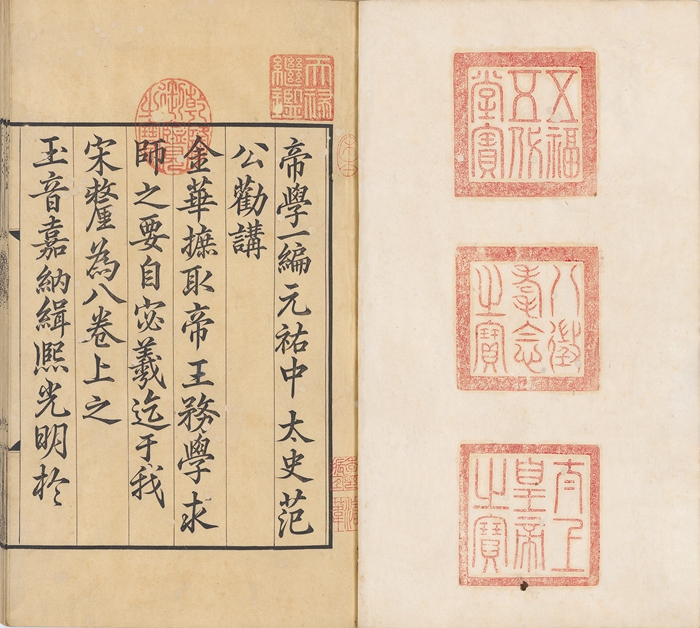 五福
五代
堂寶
八徵
耄念
之寶
太上
皇帝
之寶
天祿
繼鑑
乾隆
御覽
之寶
帝學一編元祐中太史范
公勸講
金華摭取帝王務學求
師之要自宓羲迄于我
宋釐為八卷上之
玉音嘉納緝熙光明於